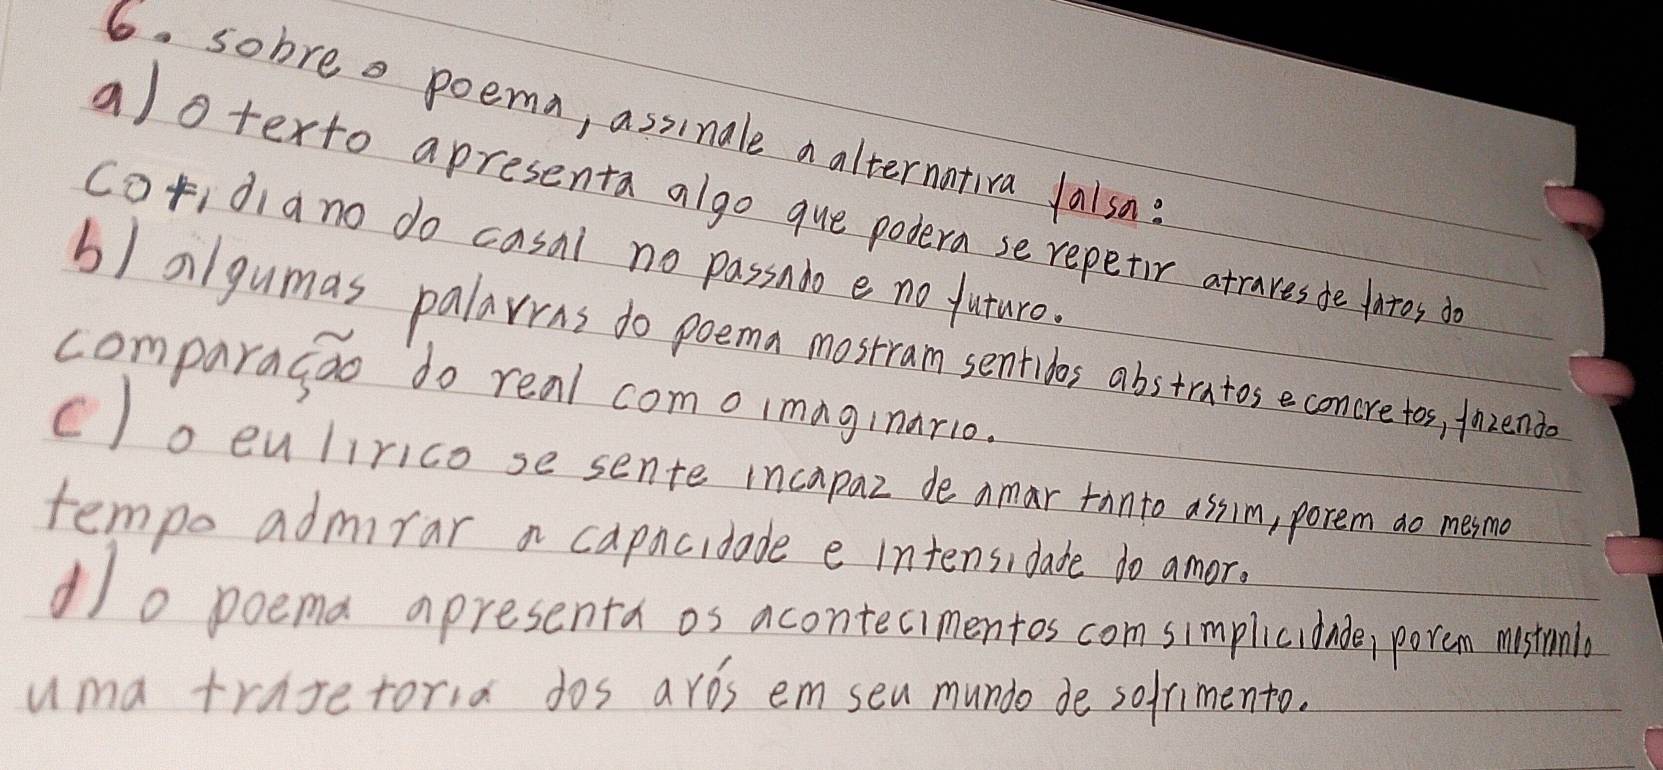 6. sobre o poema, assinale a alternativa falsa:
a) o texto apresenta algo que podera se repetir atraves de fatos do
cotidiano do casal no passado e no futuro.
b) algumas palavras do poema mostram sentidos abstratos e concretos, fazendo
comparação do real com o imaginario.
c) o eu lirico se sente incapaz de amar tanto assim, porem ao mesmo
tempo admirar a capacidade e intensidade do amor.
d) o poema apresenta os acontecimentos com simplicidade, porem mostrando
uma trajetoria dos avós em seu mundo de sofrimento.